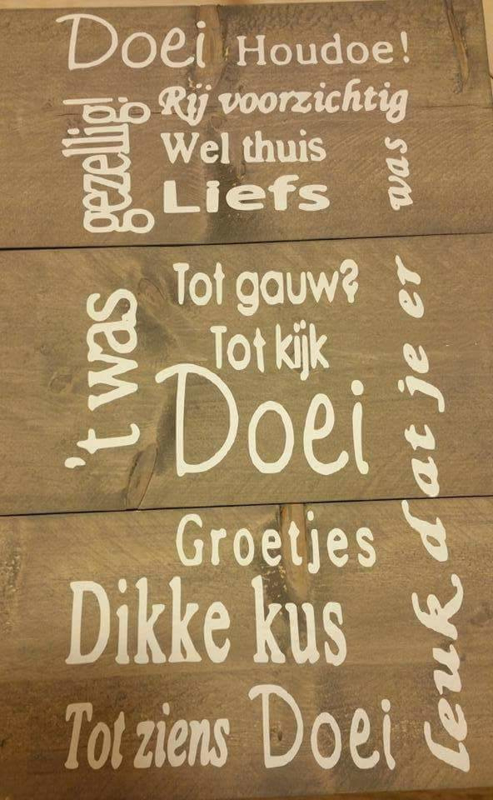 Doei Houdoe!
Rij voorzichtig
Wel thuis
Liefs
't was gezellig!
Tot gauw?
Tot kijk
Doei
leuk dat je er was
Groetjes
Dikke kus
Tot ziens Doei